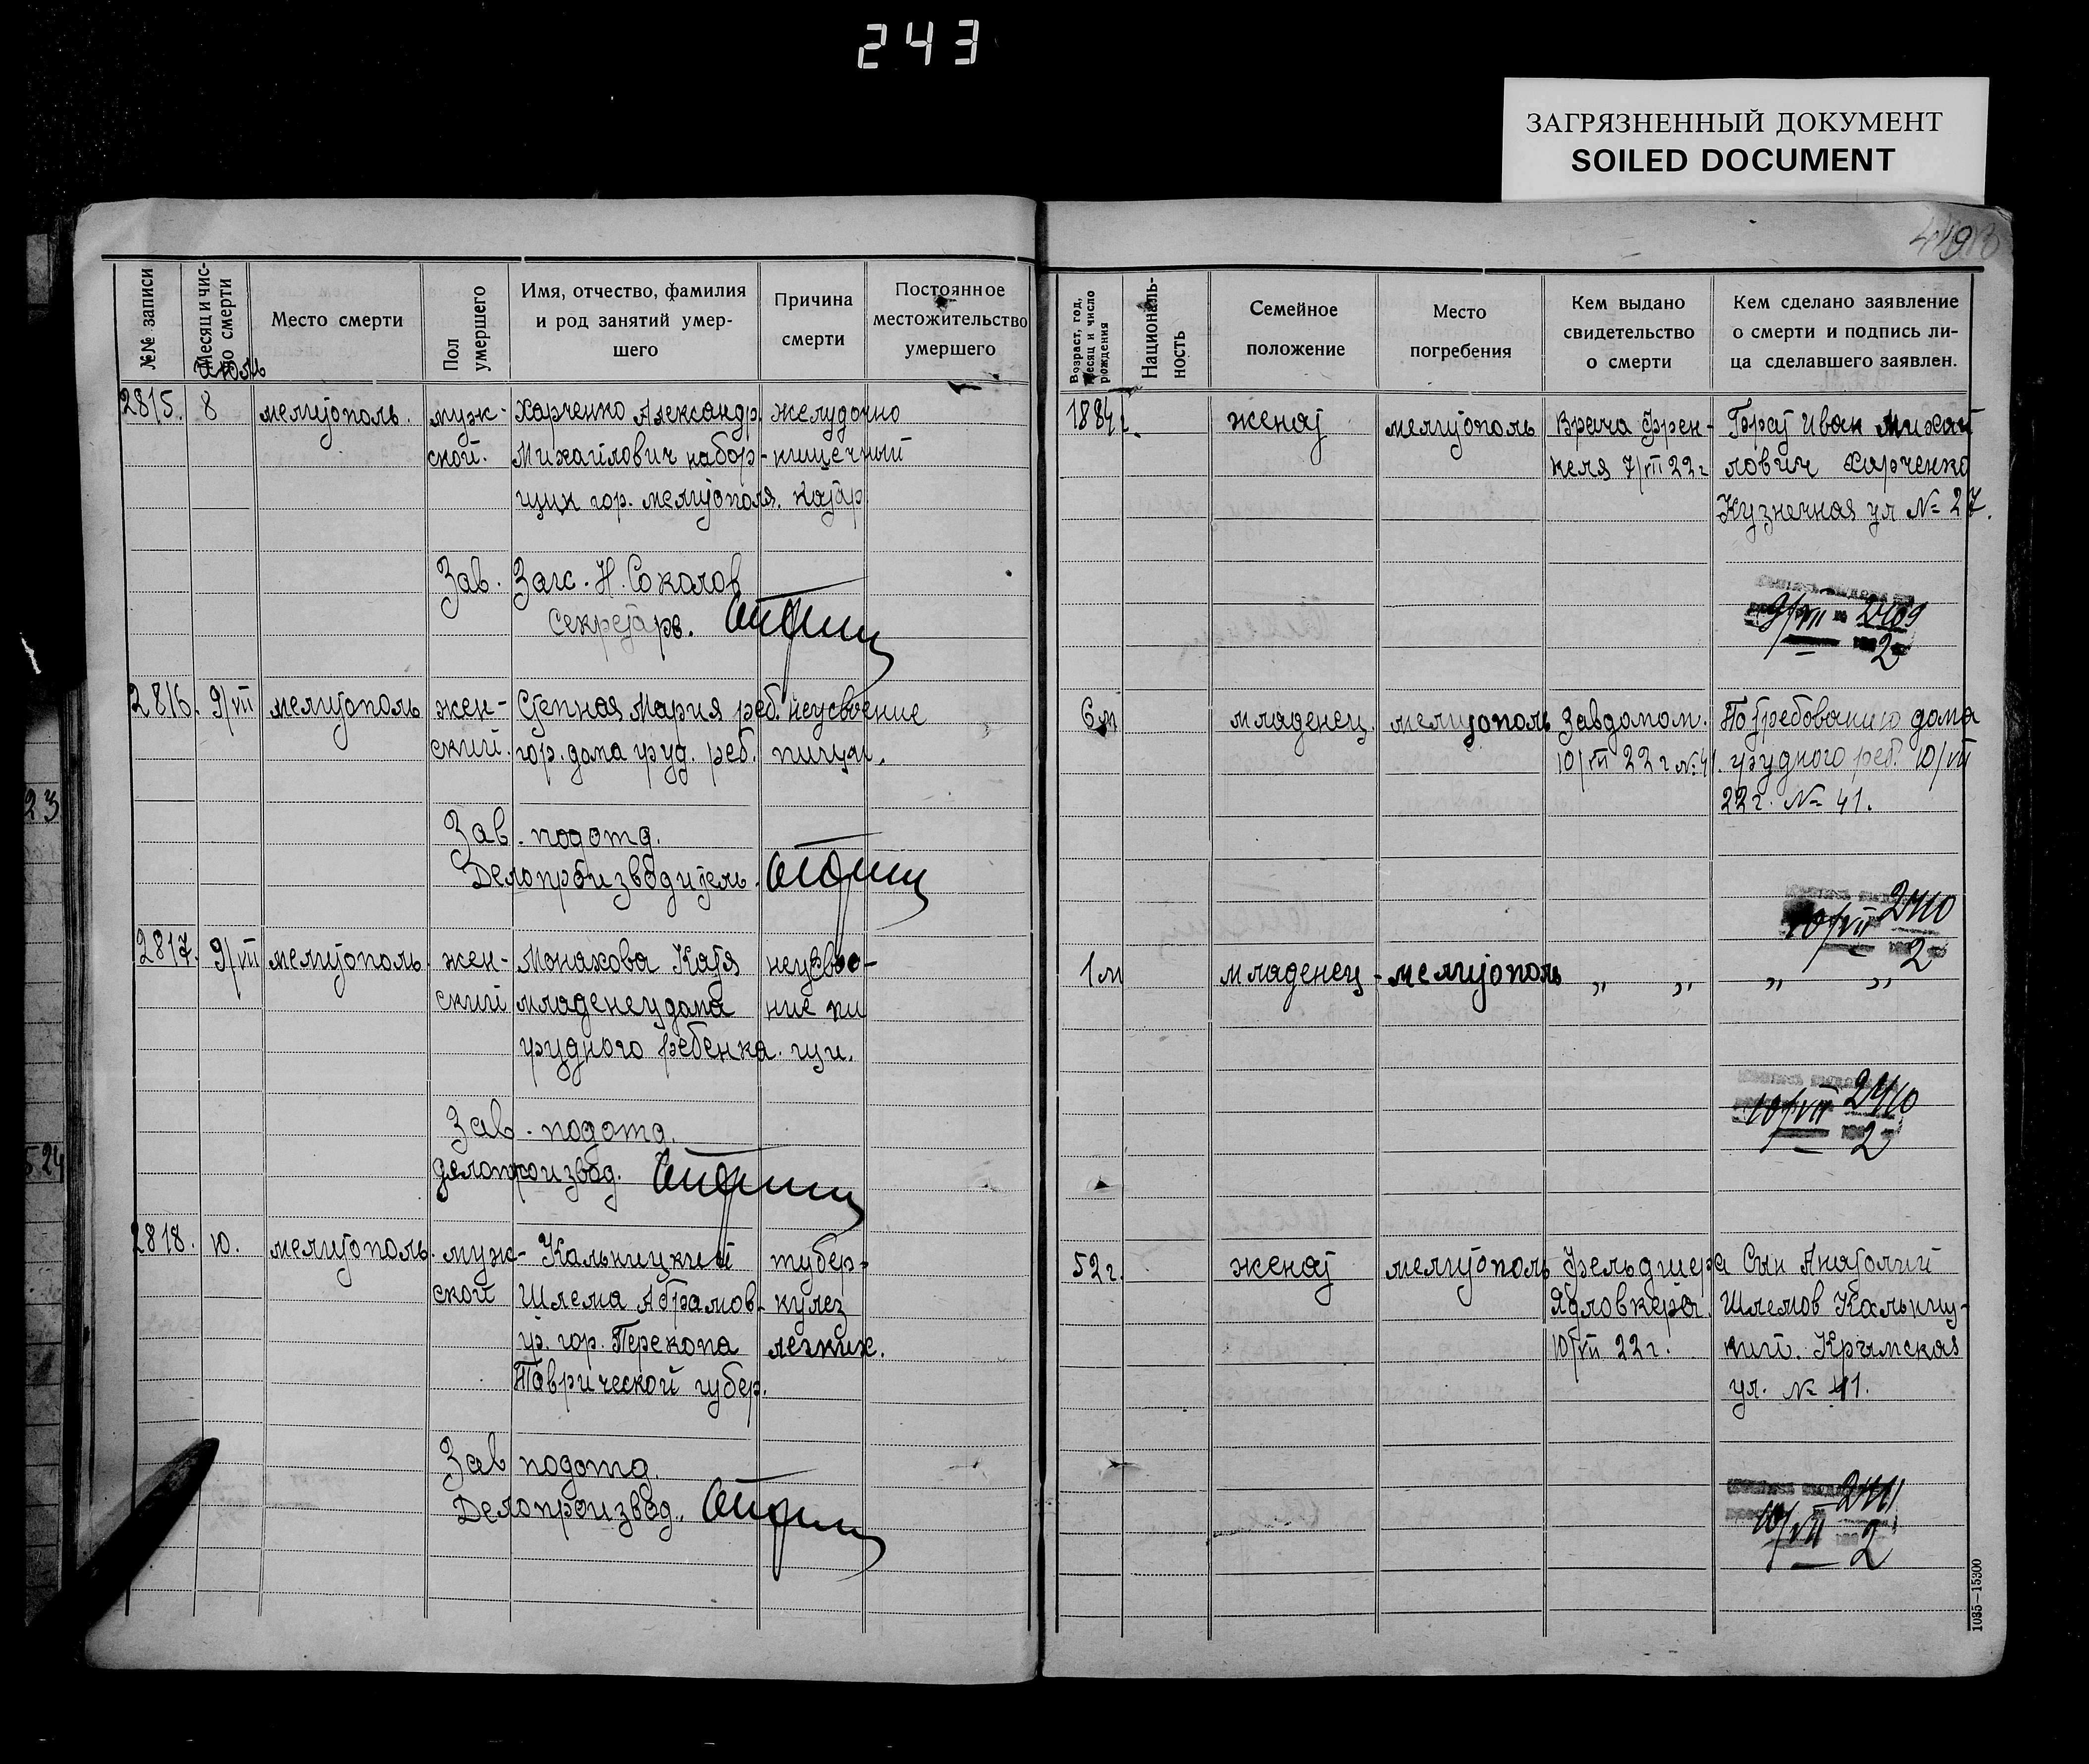 243
ЗАГРЯЗНЕННЫЙ ДОКУМЕНТ
SOILED DOCUMENT
№№ записи
Месяц и число смерти
Июль
Место смерти
Пол умершего
Имя, отчество, фамилия
и род занятий умер-
шего
Причина
смерти
Постоянное
местожительство
умершего
Возраст, год,
месяц и число
рождения
Националь-
ность
Семейное
положение
Место
погребения
Кем выдано
свидетельство
о смерти
Кем сделано заявление
о смерти и подпись ли-
ца сделавшего заявлен.
2815. 8 мелитополь. муж- Харченко Александр желудочно 1884 г. женат мелитополь Врача Френ- Брат Иван Михай
ской. Михайлович набор- кишечный келя 7/VII 22 г лович Харченко
щик гор. мелитополя. катар Кузнечная ул № 27.
Зав. Загс. Н. Соколов
Секретарь.
9/VII 2409
2
2816. 9/VII мелитополь жен- Степная Мария реб. неусвоение 6 м младенец. мелитополь Завдомом. По требованию дома
ский. гор. дома груд. реб. пищи. 10/VII 22 г № 41. грудного реб. 10/VII
22 г. № 41.
Зав. подотд.
Делопроизводитель.
10/VII 2410
2
2817. 9/VII мелитополь. жен- Монахова Катя неусвое- 1 м младенец - мелитополь „ „ „ „
ский младенец дома ние пи
грудного ребенка. щи.
Зав. подотд.
делопроизвод.
10/VII 2410
2
2818. 10. мелитополь. муж- Кальницкий тубер- 52 г. женат мелитополь Фельдшера Сын Анатолий
ской Шлема Абрамов- кулез Ядловкера. Шлемов Кальниц-
гр. гор. Перекопа легких. 10/VII 22 г. кий. Крымская
Таврической губер. ул. № 41.
Зав подотд.
Делопроизвод.
10/VII 2411
2
1035—15300